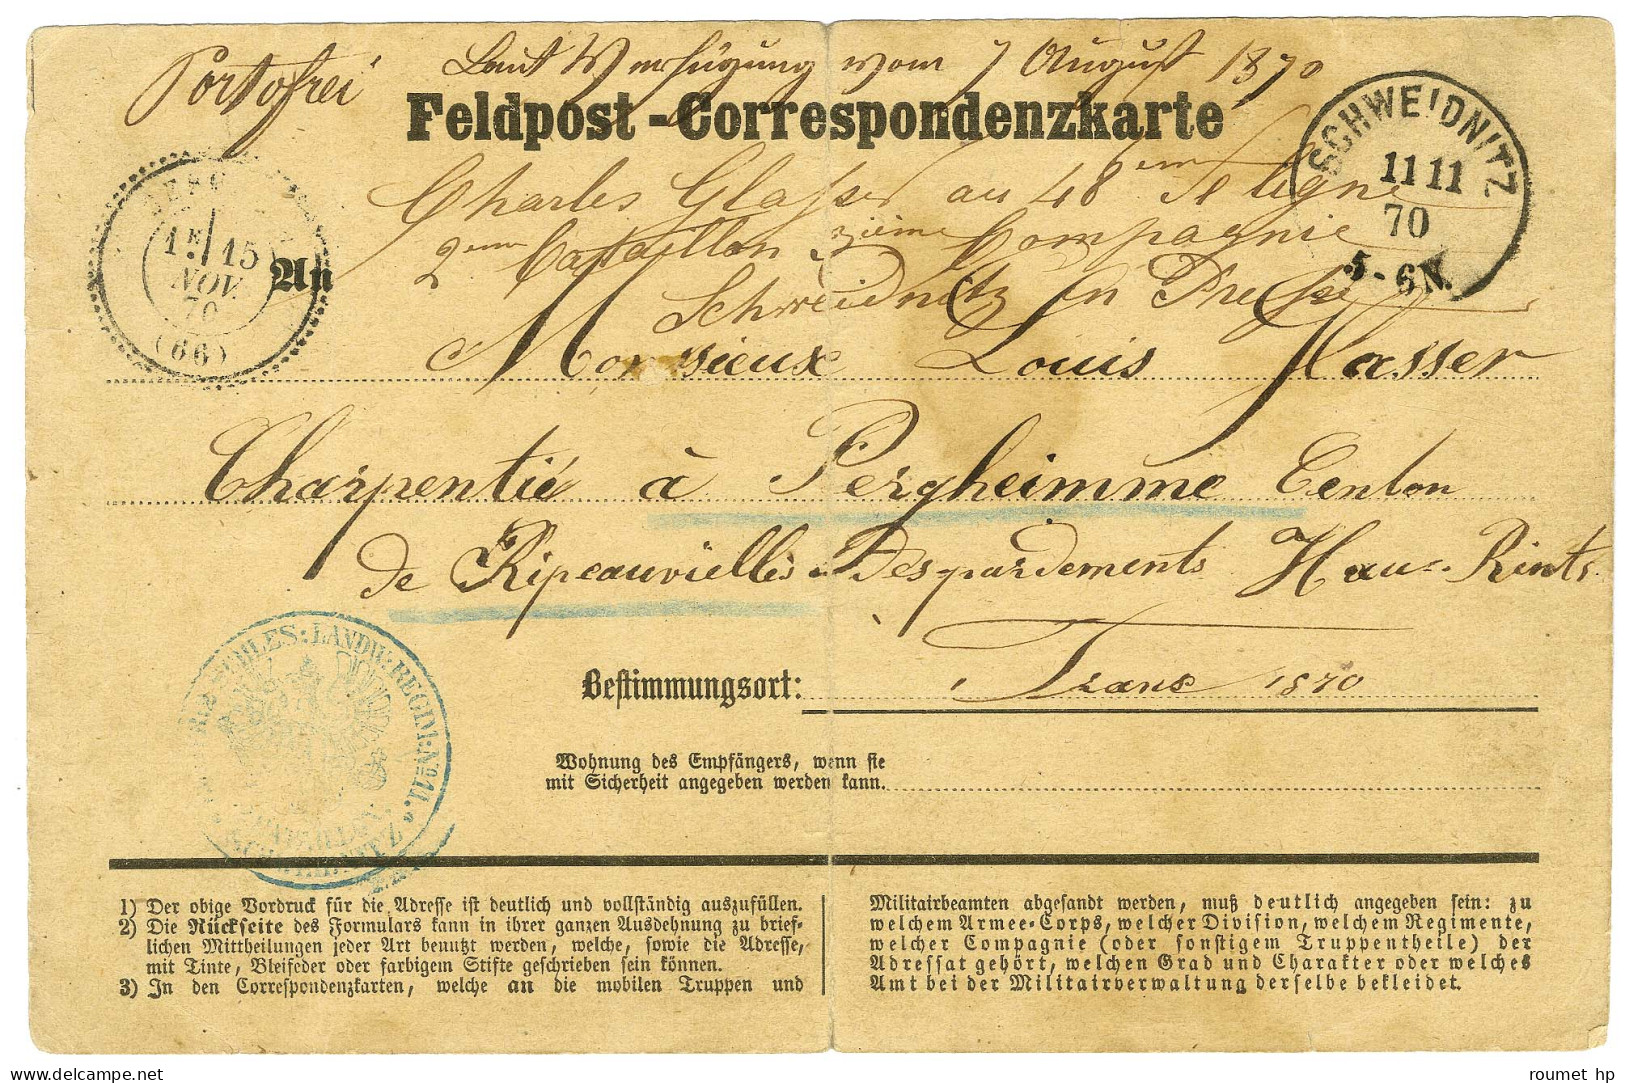 Portofrei Laut Verfügung vom 7 August 1870
Feldpost-Correspondenzkarte
SCHWEIDNITZ
11 11
70
5-6N.
Charles Glasser au 48em de ligne
2em Bataillon 2ième Compagnie
Schweidnitz in Preusse
1E 15
NOV.
70
(66)
An
Monsieux Louis Glasser
Charpentié à Pergheimme Centon
de Ripeauvielles Despardements Hau- Rints
SCHLES: LANDW: REGIMT: No. 11.
Bestimmungsort: Frans 1870
Wohnung des Empfängers, wenn sie
mit Sicherheit angegeben werden kann.
1) Der obige Vordruck für die Adresse ist deutlich und vollständig auszufüllen.
2) Die Rückseite des Formulars kann in ihrer ganzen Ausdehnung zu brief-
lichen Mittheilungen jeder Art benutzt werden, welche, sowie die Adresse,
mit Tinte, Bleifeder oder farbigem Stifte geschrieben sein können.
3) In den Correspondenzkarten, welche an die mobilen Truppen und
Militairbeamten abgesandt werden, muß deutlich angegeben sein: zu
welchem Armee-Corps, welcher Division, welchem Regimente,
welcher Compagnie (oder sonstigem Truppentheile) der
Adressat gehört, welchen Grad und Charakter oder welches
Amt bei der Militairverwaltung derselbe bekleidet.
roumet hp